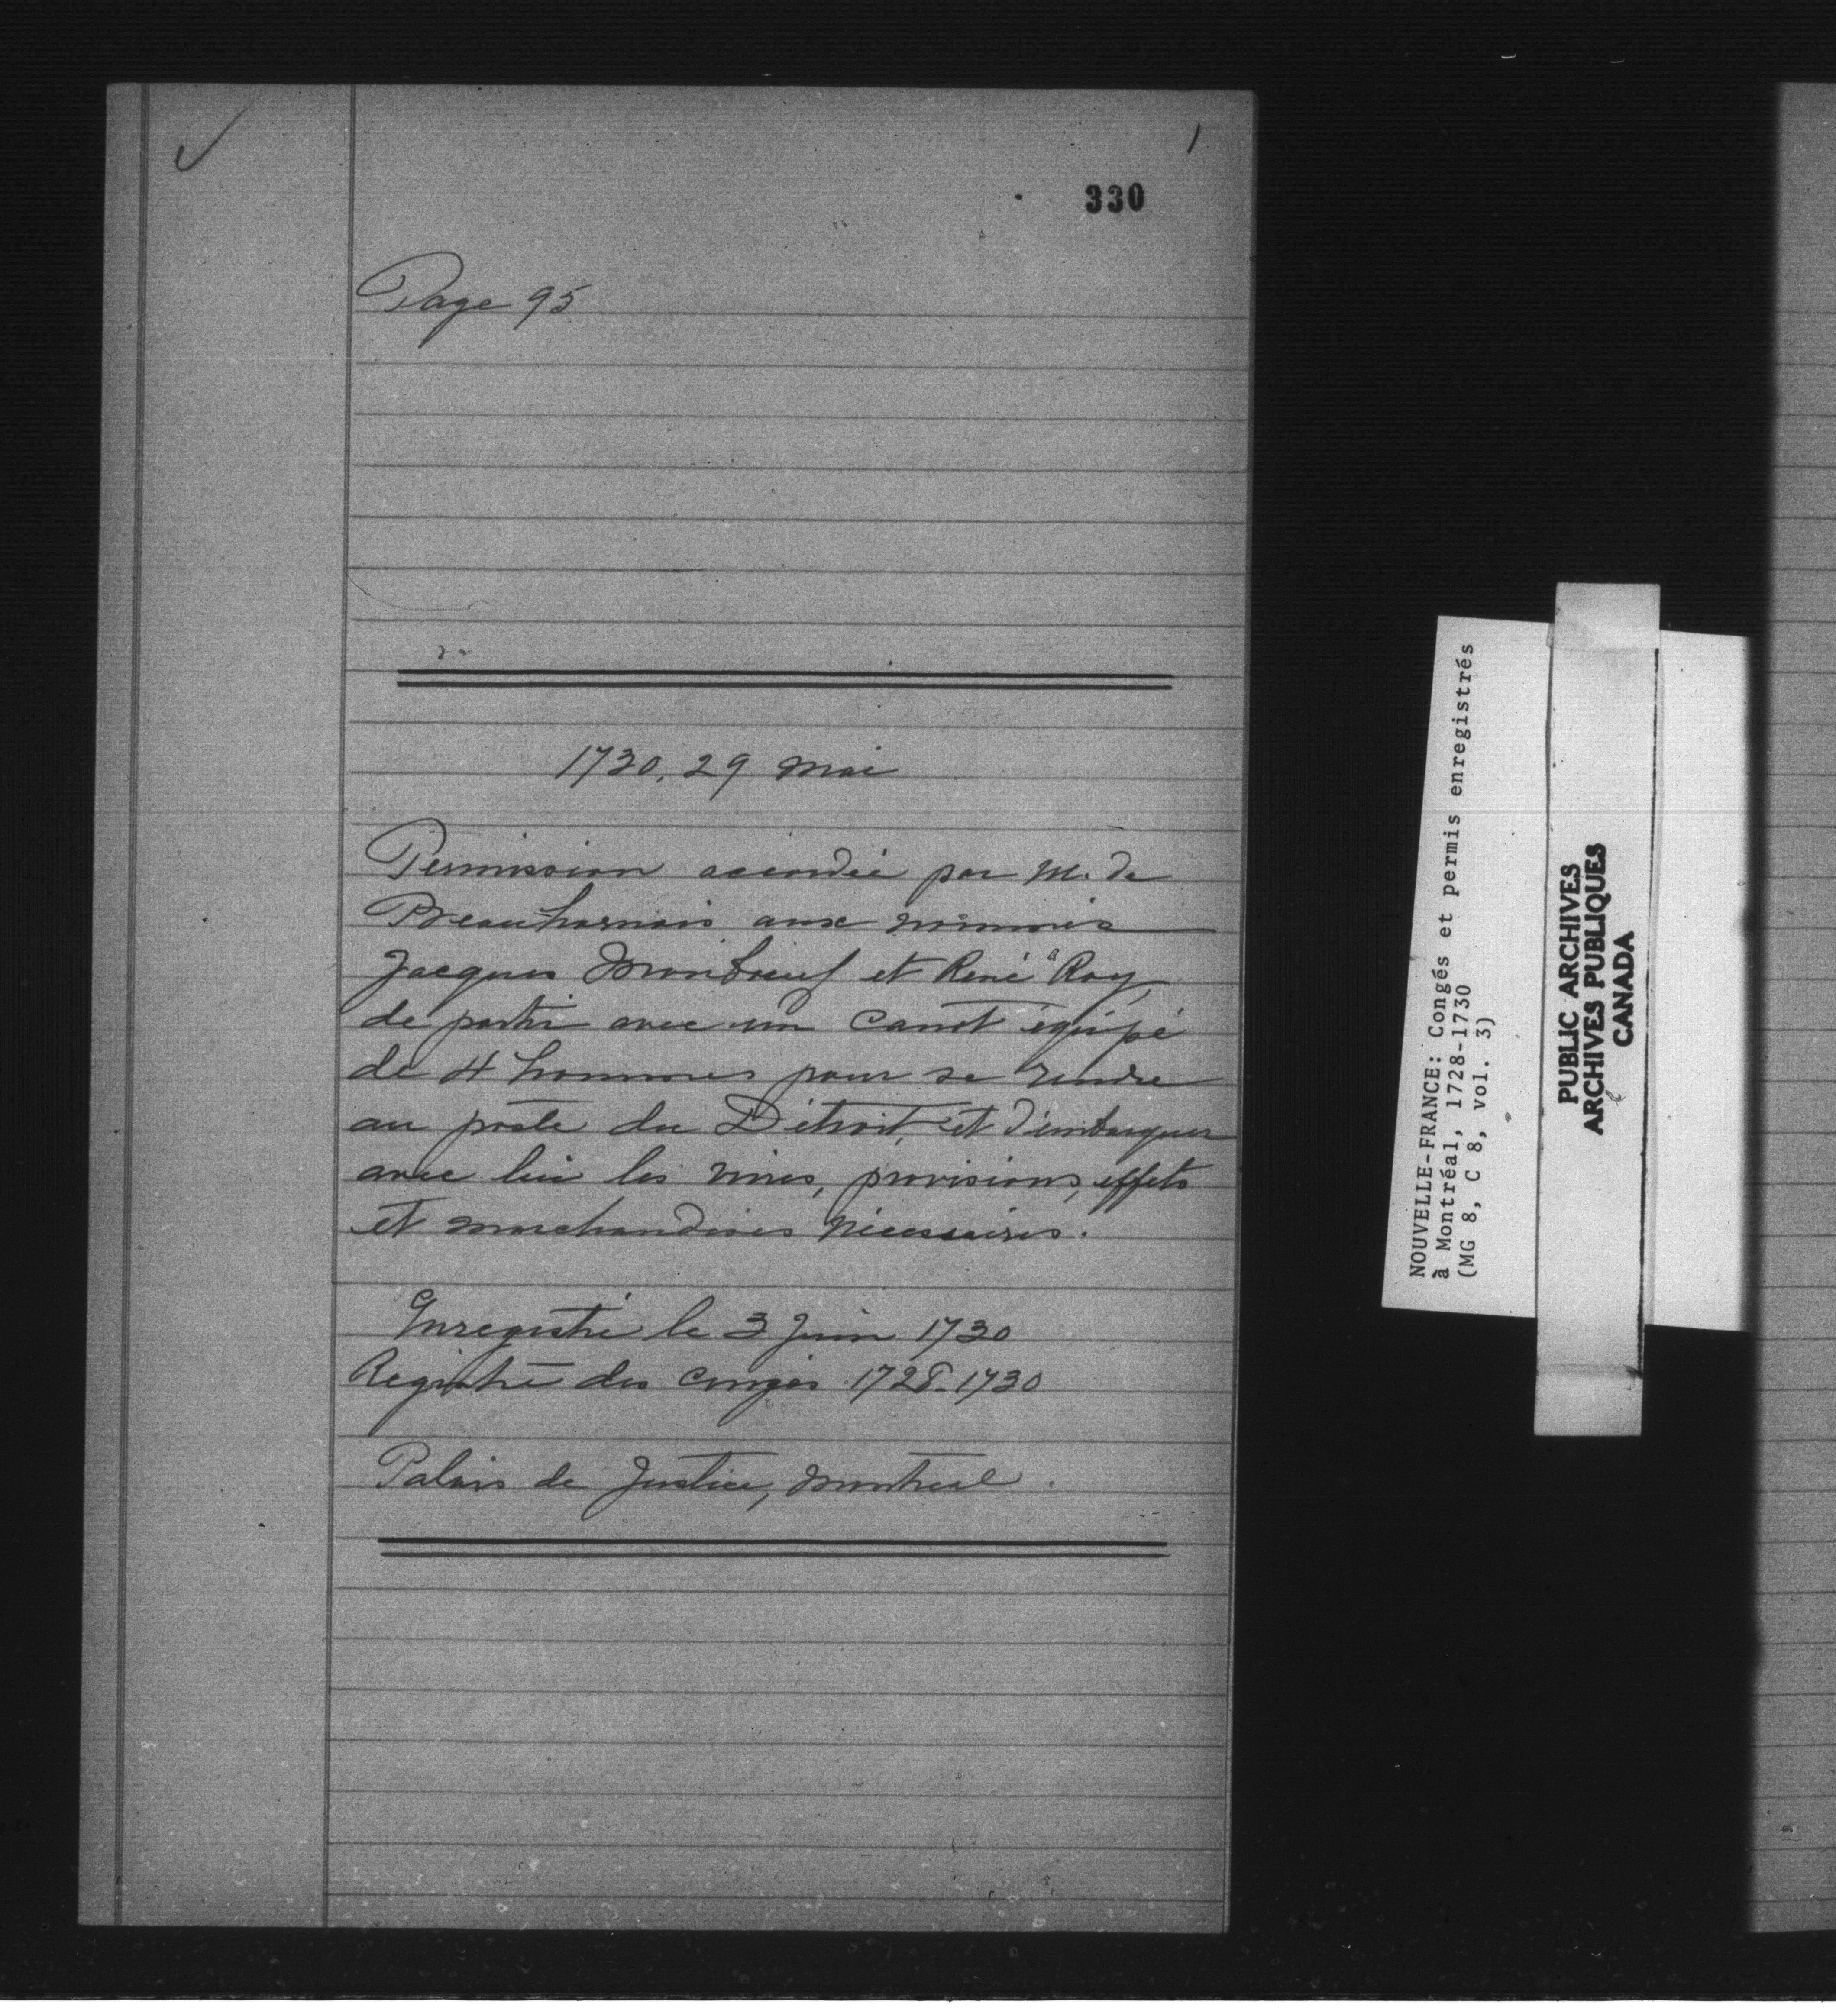 1
330
Page 95
1730, 29 mai
Permission accordée par M. de
Beauharnais aux nommés
Jacques Monbœuf et René Roy,
de partir avec un canot équipé
de 4 hommes pour se rendre
au poste du Détroit, et d'embarquer
avec lui les vivres, provisions, effets
et marchandises nécessaires.
Enregistré le 3 Juin 1730
Registre des congés 1728-1730
Palais de Justice, Montreal.
NOUVELLE-FRANCE: Congés et permis enregistrés
à Montréal, 1728-1730
(MG 8, C 8, vol. 3)
PUBLIC ARCHIVES
ARCHIVES PUBLIQUES
CANADA